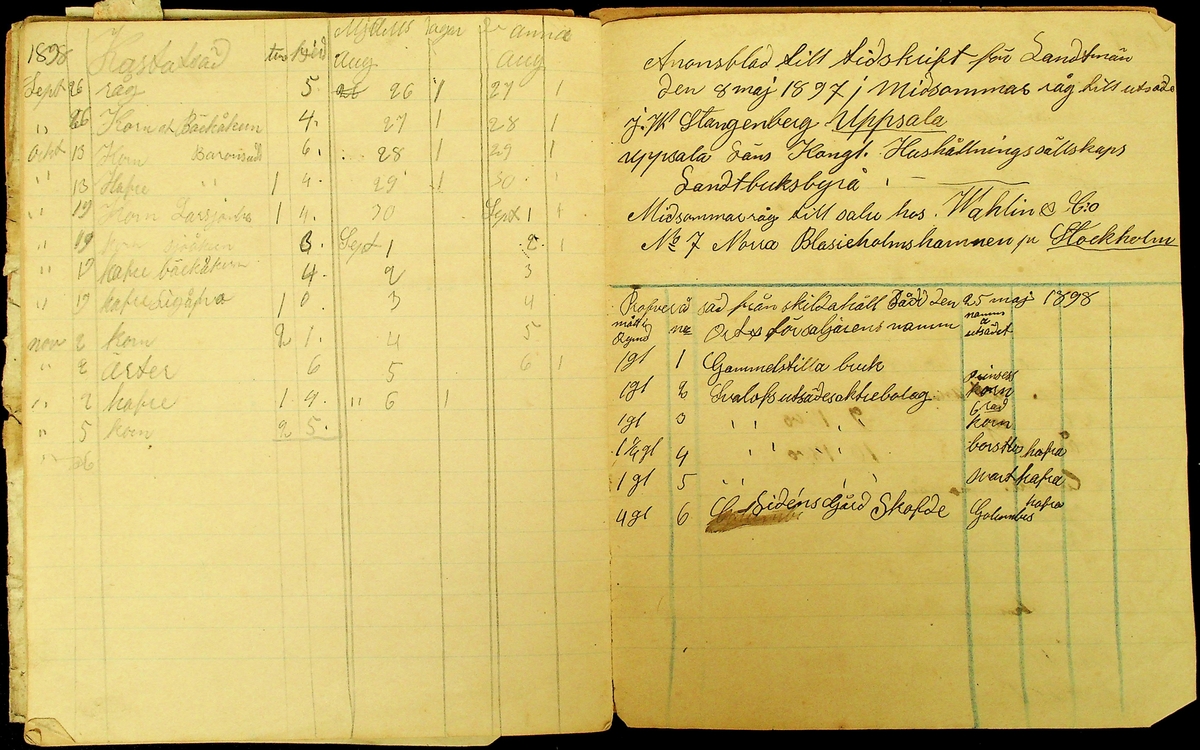 1898 Kastasäd tun Mjölks dagar för anna
aug aug
Sept 26 råg 5. 26 26 1 27 1
" 26 Korn at Bäckåkern 4. 27 1 28 1
Oct 13 Korn 6. 28 1 29 1
" 13 Hafre " 1 4. 29 1 30 1
" 19 Korn 1 4. 30 Sept 1 1
" 19 korn sjöåkern 3. Sept 1 2. 1
" 19 hafre bäckåkern 4. 2 3
" 19 hafre 1 0 3 4
nov 2 korn 2 1. 4 5
" 2 Ärter 6 5 6 1
" 2 hafre 1 4. " 6 1
" 5 korn 2 5.
" 26
Anonsblad till tidskrift för Landtmän
den 8 maj 1897 j Midsommar råg till utsäde
j. W Stangenberg Uppsala
Uppsala Läns Kongl. Hushållningssällskaps
Landtbuksbyrå
Midsommarråg till salu hos. Wahlin & C:o
No 7 Norra Blasieholmshamnen jn Stockholm
Profver å säd från skilda håll Sådd den 25 maj 1898
mått nr Ort & försäljarens namn namn å utsädet
1gl 1 Gammelstilla bruk
1gl 2 Svalöfs utsädesaktiebolag prinsess korn
1gl 3 " " " " 6 rad korn
1 1/4 gl 4 " " " " borstlös hafra
1gl 5 " " " " svart hafra
4gl 6 Lidéns Gård Skofde Golumbus hafra